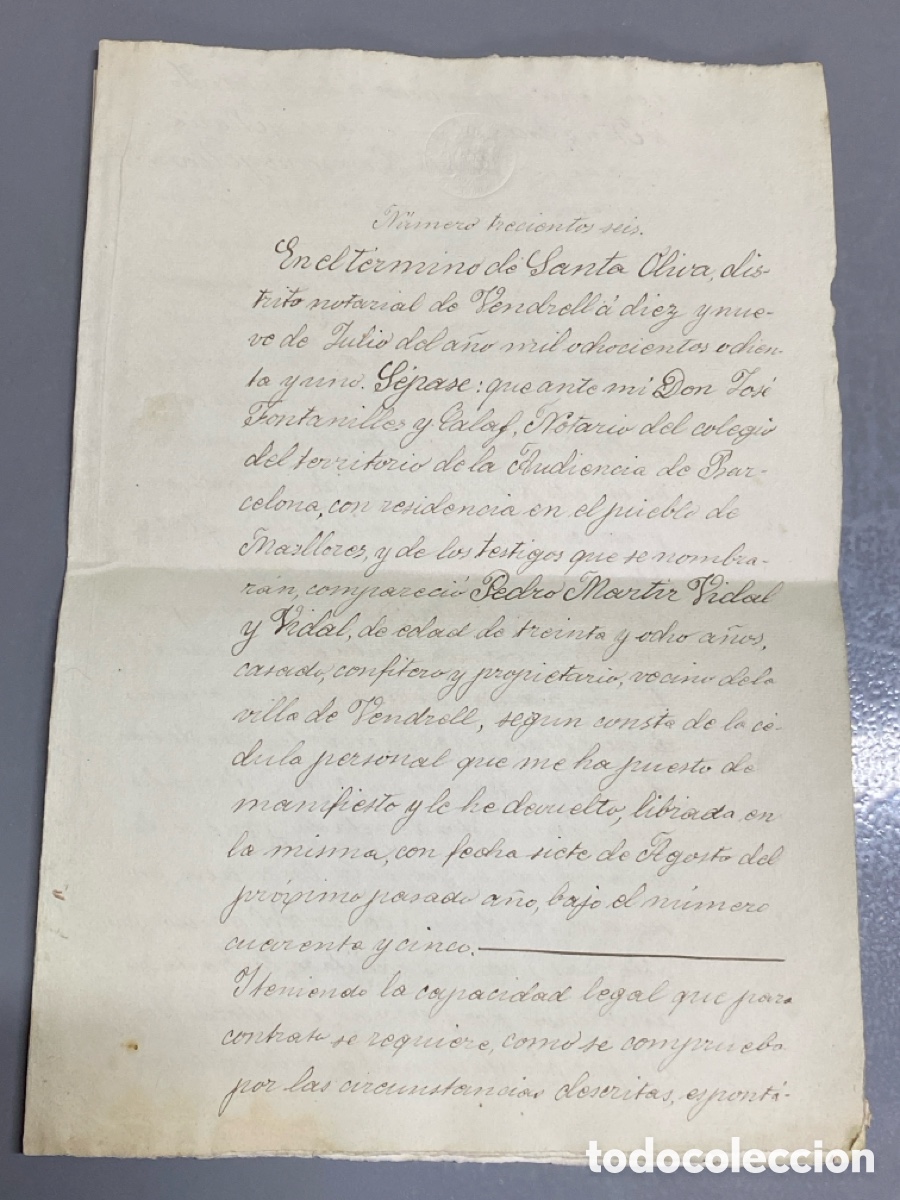 Número trecientos seis.
En el término de Santa Oliva, dis-
trito notarial de Vendrell á diez y nue-
ve de Julio del año mil ochocientos ochen-
ta y uno. Sépase: que ante mi Don José
Fontanilles y Calaf, Notario del colegio
del territorio de la Audiencia de Bar-
celona, con residencia en el pueblo de
Masllores, y de los testigos que se nombra-
rán, compareció Pedro Martir Vidal
y Vidal, de edad de treinta y ocho años,
casado, confitero y propietario, vecino de la
villa de Vendrell, segun consta de la cé-
dula personal que me ha puesto de
manifiesto y le he devuelto, librada en
la misma, con fecha siete de Agosto del
próximo pasado año, bajo el número
cuarenta y cinco.
Y teniendo la capacidad legal que para
contrato se requiere, como se comprueba
por las circunstancias descritas, espontá-
todocoleccion.net